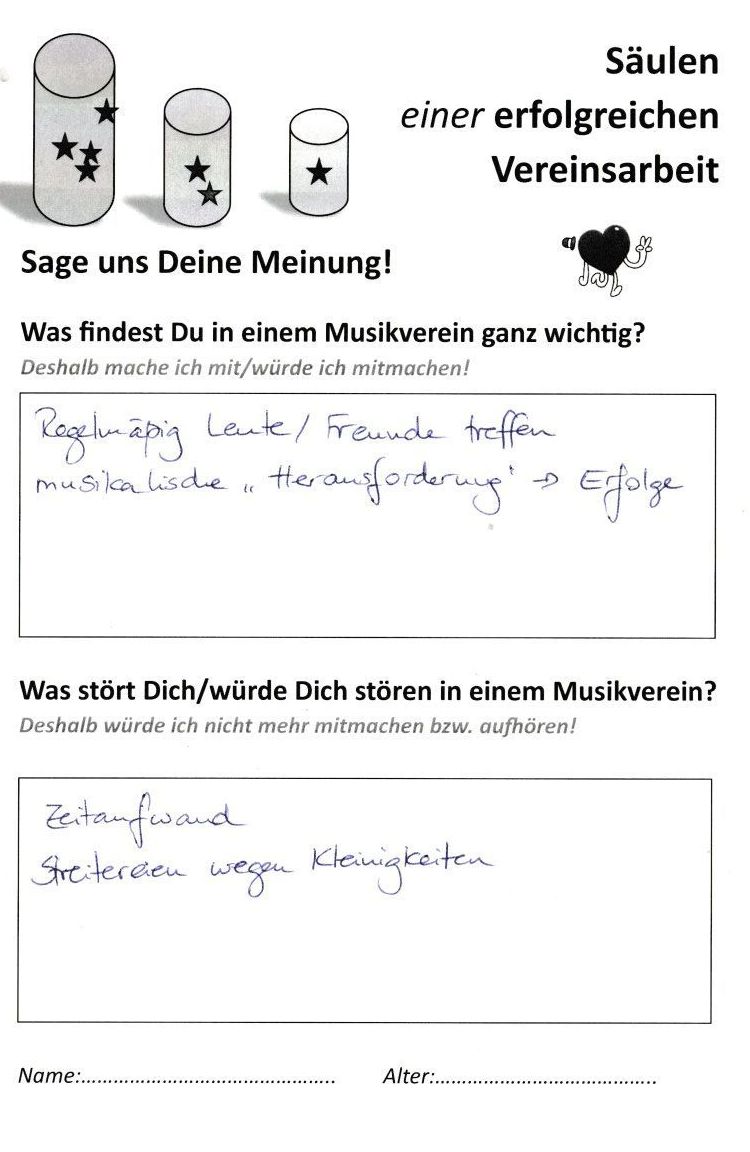 Säulen
einer erfolgreichen
Vereinsarbeit
Sage uns Deine Meinung!
Was findest Du in einem Musikverein ganz wichtig?
Deshalb mache ich mit/würde ich mitmachen!
Regelmäßig Leute / Freunde treffen
musikalische „Herausforderung" → Erfolge
Was stört Dich/würde Dich stören in einem Musikverein?
Deshalb würde ich nicht mehr mitmachen bzw. aufhören!
Zeitaufwand
Streitereien wegen Kleinigkeiten
Name:.............................................. Alter:........................................